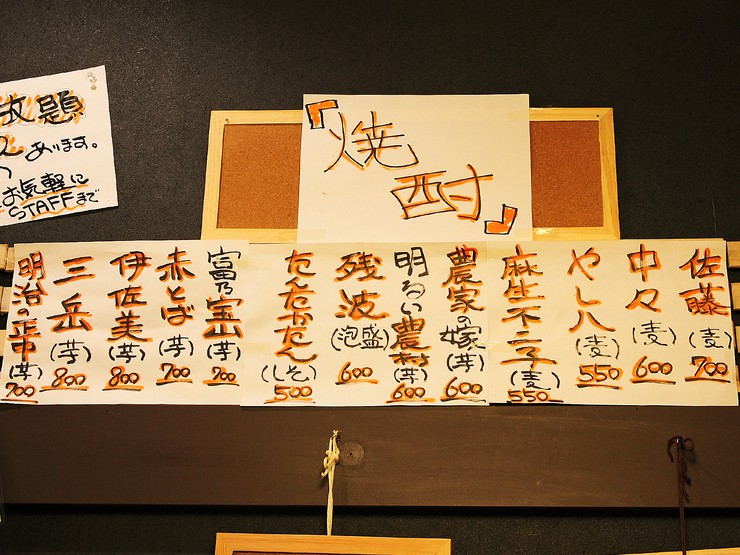 放題
あります。
お気軽に
STAFFまで
『焼酎』
佐藤(麦)700
中々(麦)600
やしハ(麦)550
麻生不二子(麦)550
農家の嫁(芋)600
明るい農村(芋)600
残波(泡盛)600
たんたかたん(しそ)500
富乃宝山(芋)700
赤とば(芋)700
伊佐美(芋)800
三岳(芋)800
明治の正中(芋)700